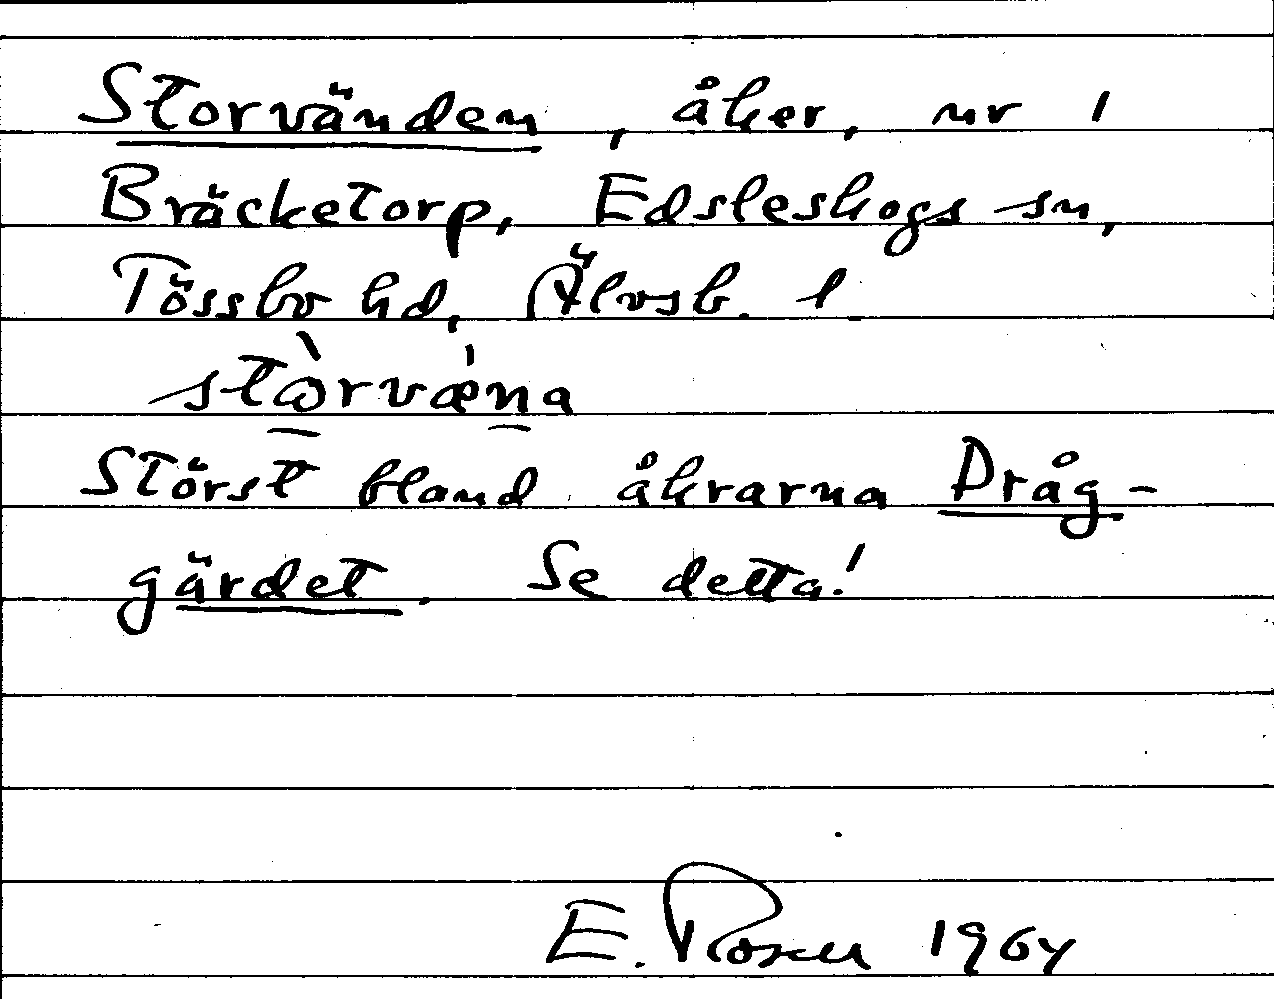 Storvänden, åker, nr 1
Bräcketorp, Edsleskogs sn,
Tössbo hd, Älvsb. l
stɷ̀rvǽna
Störst bland åkrarna Dråg-
gärdet. Se detta!
E. Rosell 1964